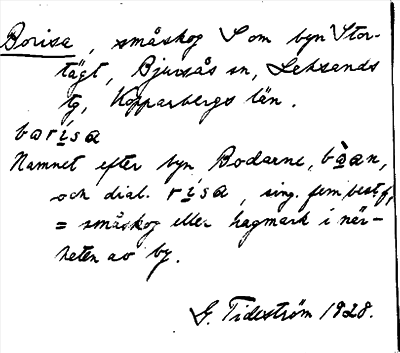 Borisa, småskog S om byn Stor-
tägt, Bjursås sn, Leksands
tg, Kopparbergs län.
barísa
Namnet efter byn Bodarne, bàan,
och dial. rísa, sing. fem. best. f,
= småskog eller hagmark i när-
heten av by.
G. Tideström 1928.